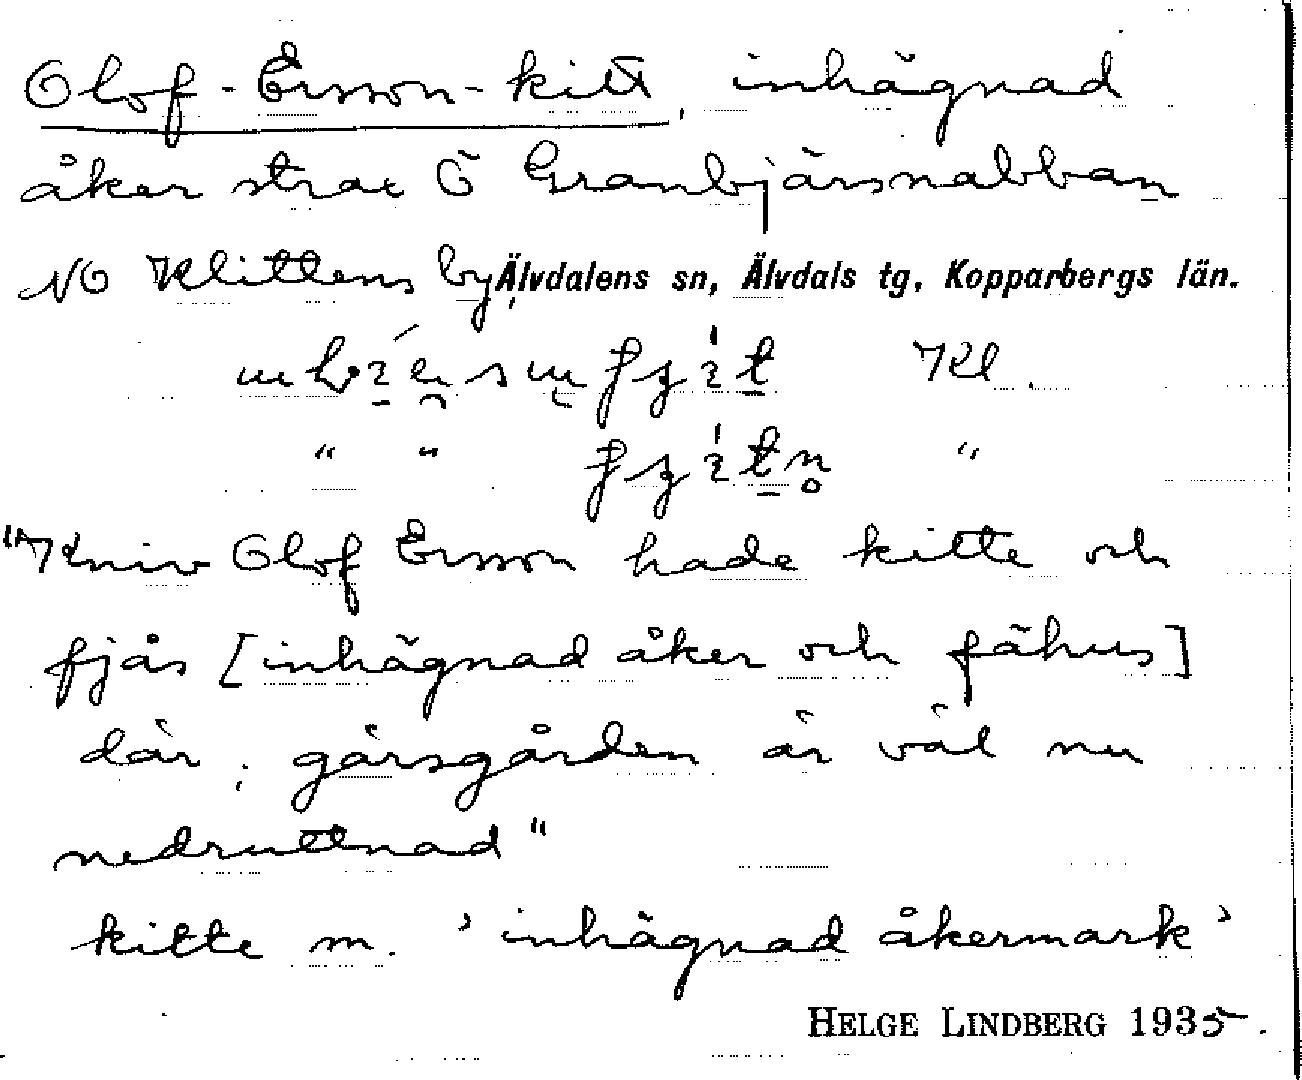 Olof-Ersson-kitt, inhägnad
åker strax Ö Granbjärsnabban
NO Klittens by, Älvdalens sn, Älvdals tg, Kopparbergs län.
Kl.
" " "
"Kniv Olof Ersson hade kitte och
fjås [inhägnad åker och fähus]
där; gärsgården är väl nu
nedruttnad"
kitte m. 'inhägnad åkermark'
HELGE LINDBERG 1935.